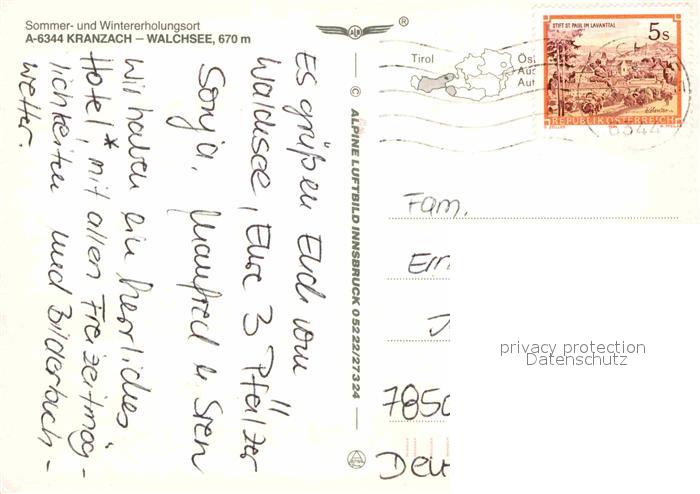 Sommer- und Wintererholungsort
A-6344 KRANZACH – WALCHSEE, 670 m
®
Es grüßen Euch vom
Walchsee, Eure 3 Pfälzer
Sonja, Manfred u. Sven
Wir haben ein herrliches
Hotel,* mit allen Freizeitmög-
lichkeiten und Bilderbuch-
wetter.
© ALPINE LUFTBILD INNSBRUCK 05222/27324
Tirol
Öst
Aus
Aut
STIFT ST. PAUL IM LAVANTTAL
5 S
REPUBLIK ÖSTERREICH
6344
Fam.
7850
Deu
privacy protection
Datenschutz